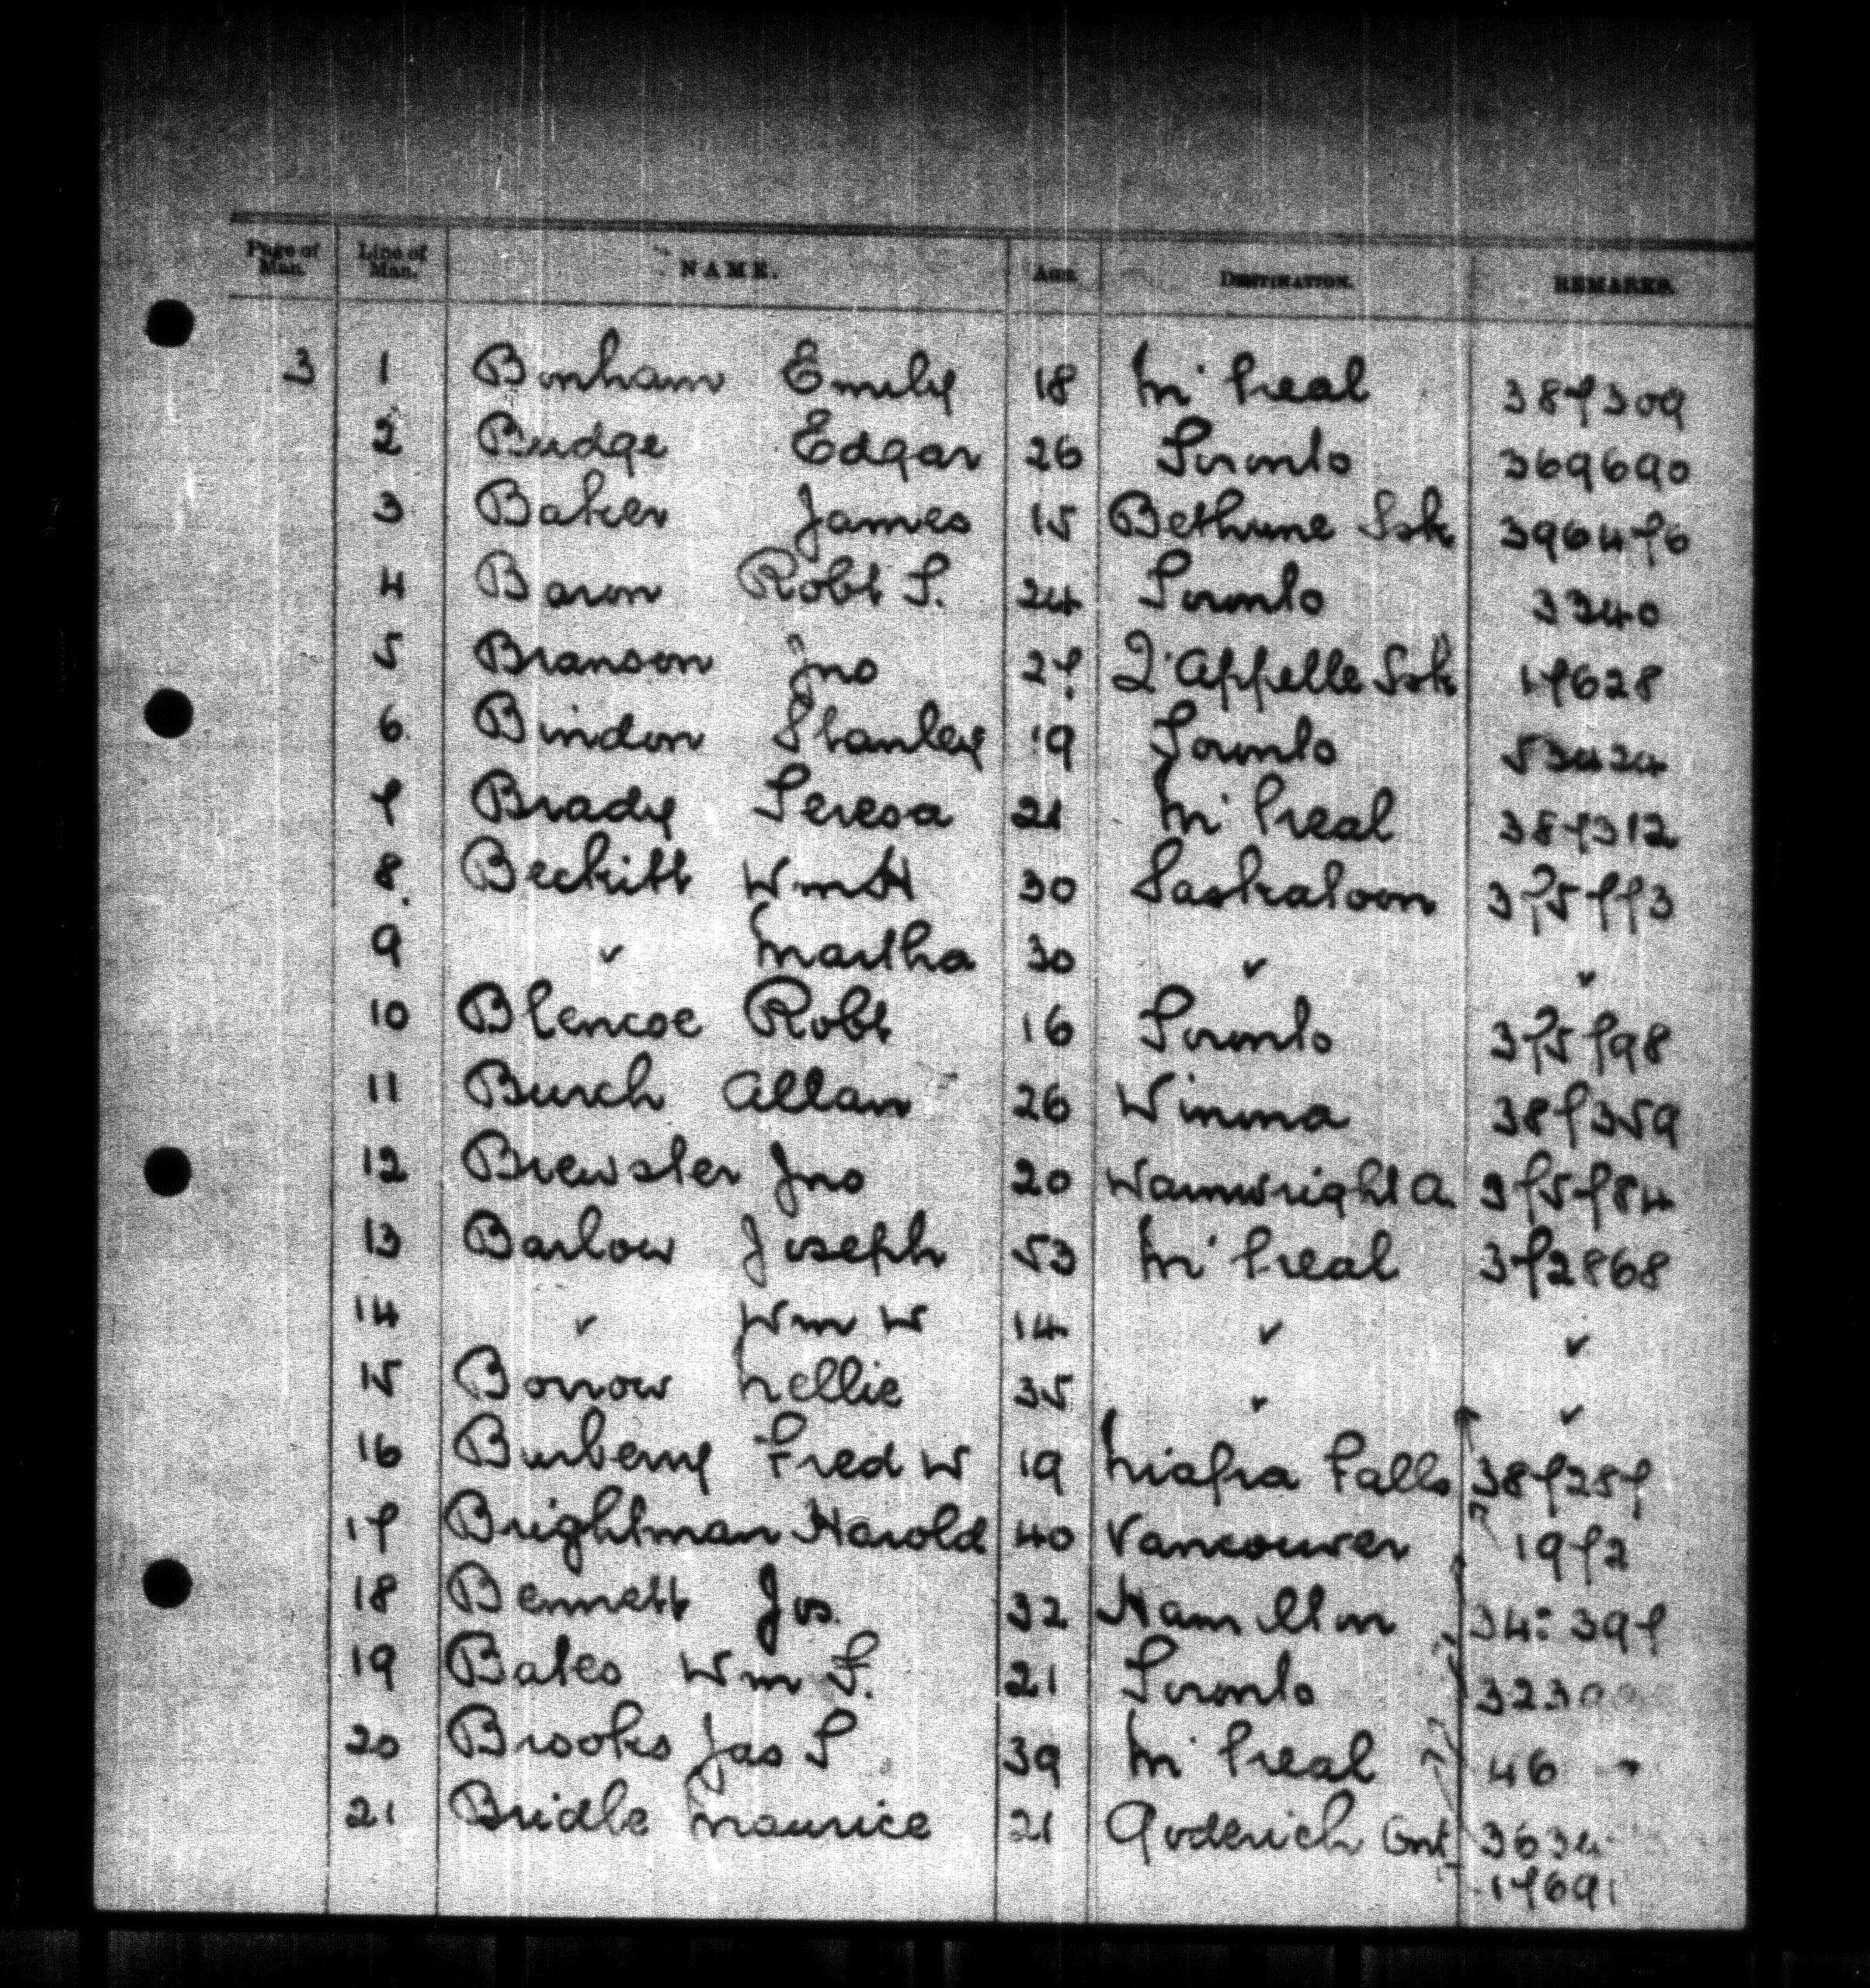 Page of Man. Line of Man. NAME. AGE. DESTINATION. REMARKS.
3 1 Bonham Emily 18 M'treal 387309
2 Budge Edgar 26 Toronto 369690
3 Baker James 15 Bethune Ssk 396476
4 Baron Robt T. 24 Toronto 3340
5 Branson Jno 27 Q'Appelle Ssk 17628
6 Bindon Stanley 19 Toronto 53424
7 Brady Teresa 21 M'treal 387312
8 Beckitt Wm H 30 Saskatoon 375773
9 " Martha 30 " "
10 Blencoe Robt 16 Toronto 375798
11 Burch Allan 26 Winona 387359
12 Brewster Jno 20 Wainwright A 375784
13 Barlow Joseph 53 M'treal 372868
14 " Wm W 14 " "
15 Borrow Nellie 35 " "
16 Burberry Fred W 19 Niagra Falls 387287
17 Brightman Harold 40 Vancouver 1972
18 Bennett Jos. 32 Hamilton 34: 397
19 Bates Wm T. 21 Toronto 3230
20 Brooks Jas T 39 M'treal 46
21 Bridle Maurice 21 Goderich Ont 3634
17691